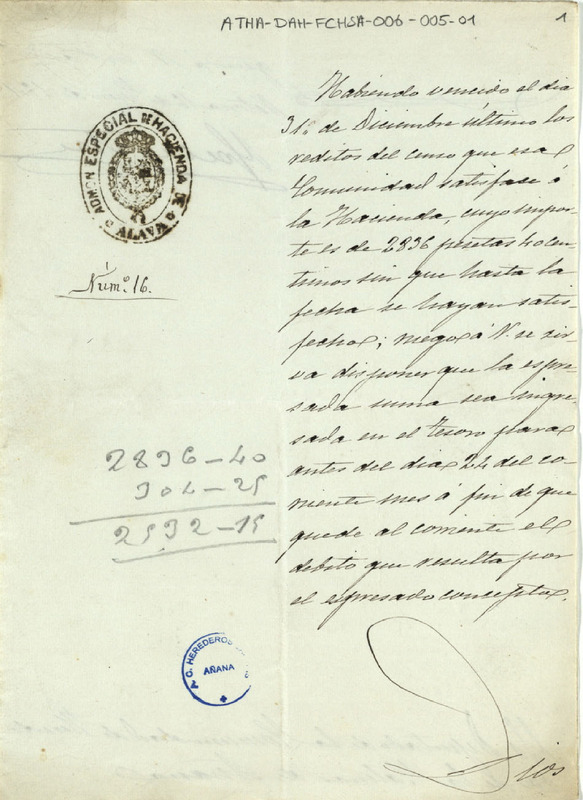 ATHA-DAH-FCHSA-006-005-01
1
ADMON ESPECIAL DE HACIENDA DE
ALAVA
Núm.º 16.
Habiendo vencido el dia
31 de Diciembre último los
reditos del censo que esa
Comunidad satisfase á
la Hacienda, cuyo impor-
te es de 2836 pesetas 40 cen-
timos sin que hasta la
fecha se hayan satis-
fecho; ruego á V. se sir-
va disponer que la espre-
sada suma sea ingre-
sada en el Tesoro para
antes del dia 24 del co-
rriente mes á fin de que
quede al corriente el
debito que resulta por
el espresado concepto.
Dios
2836-40
304-25
2532-15
C. HEREDEROS
AÑANA